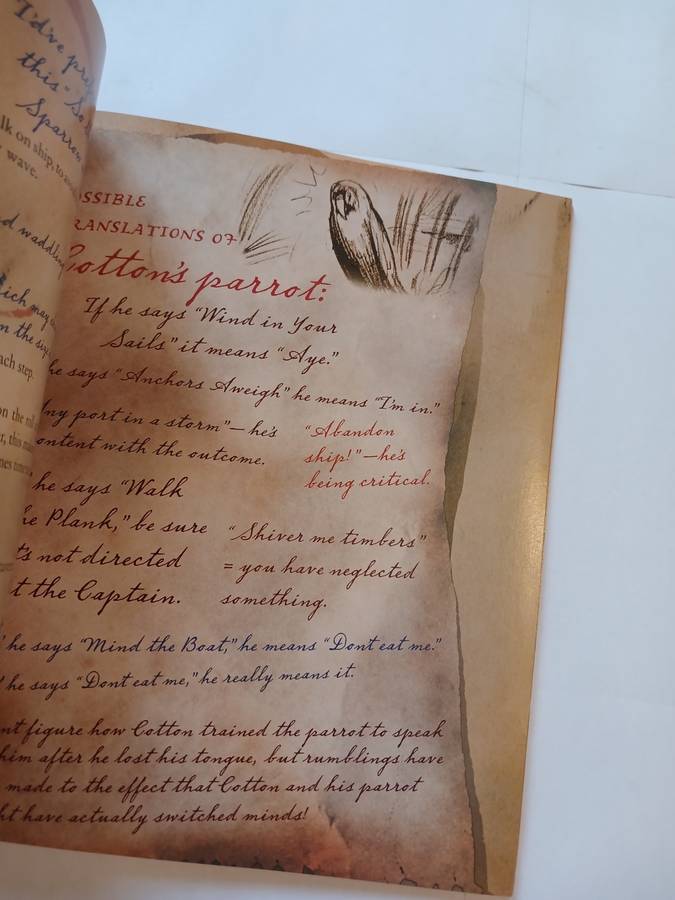 I'd've pref
this" So
Sparrow
lk on ship, to
wave.
d waddling
ich may
n the
ach step.
on the
OSSIBLE
RANSLATIONS OF
Cotton's parrot:
If he says "Wind in Your
Sails" it means "Aye."
he says "Anchors Aweigh" he means "I'm in."
Any port in a storm"—he's
ontent with the outcome.
"Abandon
ship!"—he's
being critical.
he says "Walk
he Plank," be sure
t's not directed
t the Captain.
"Shiver me timbers"
= you have neglected
something.
he says "Mind the Boat," he means "Dont eat me."
he says "Dont eat me," he really means it.
nt figure how Cotton trained the parrot to speak
him after he lost his tongue, but rumblings have
made to the effect that Cotton and his parrot
ht have actually switched minds!